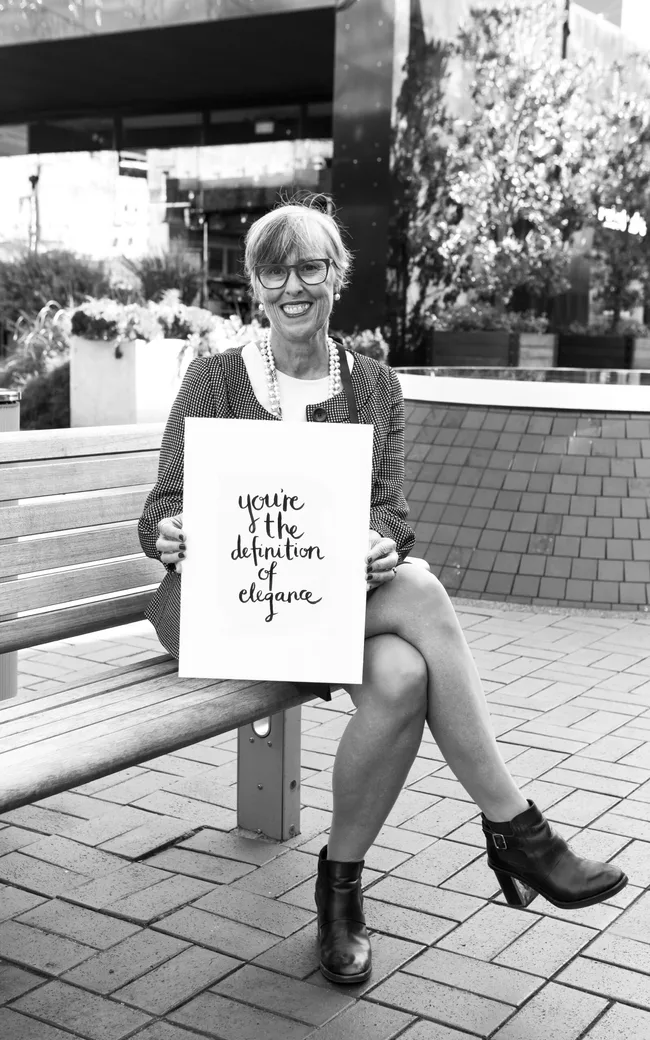 you're
the
definition
of
elegance